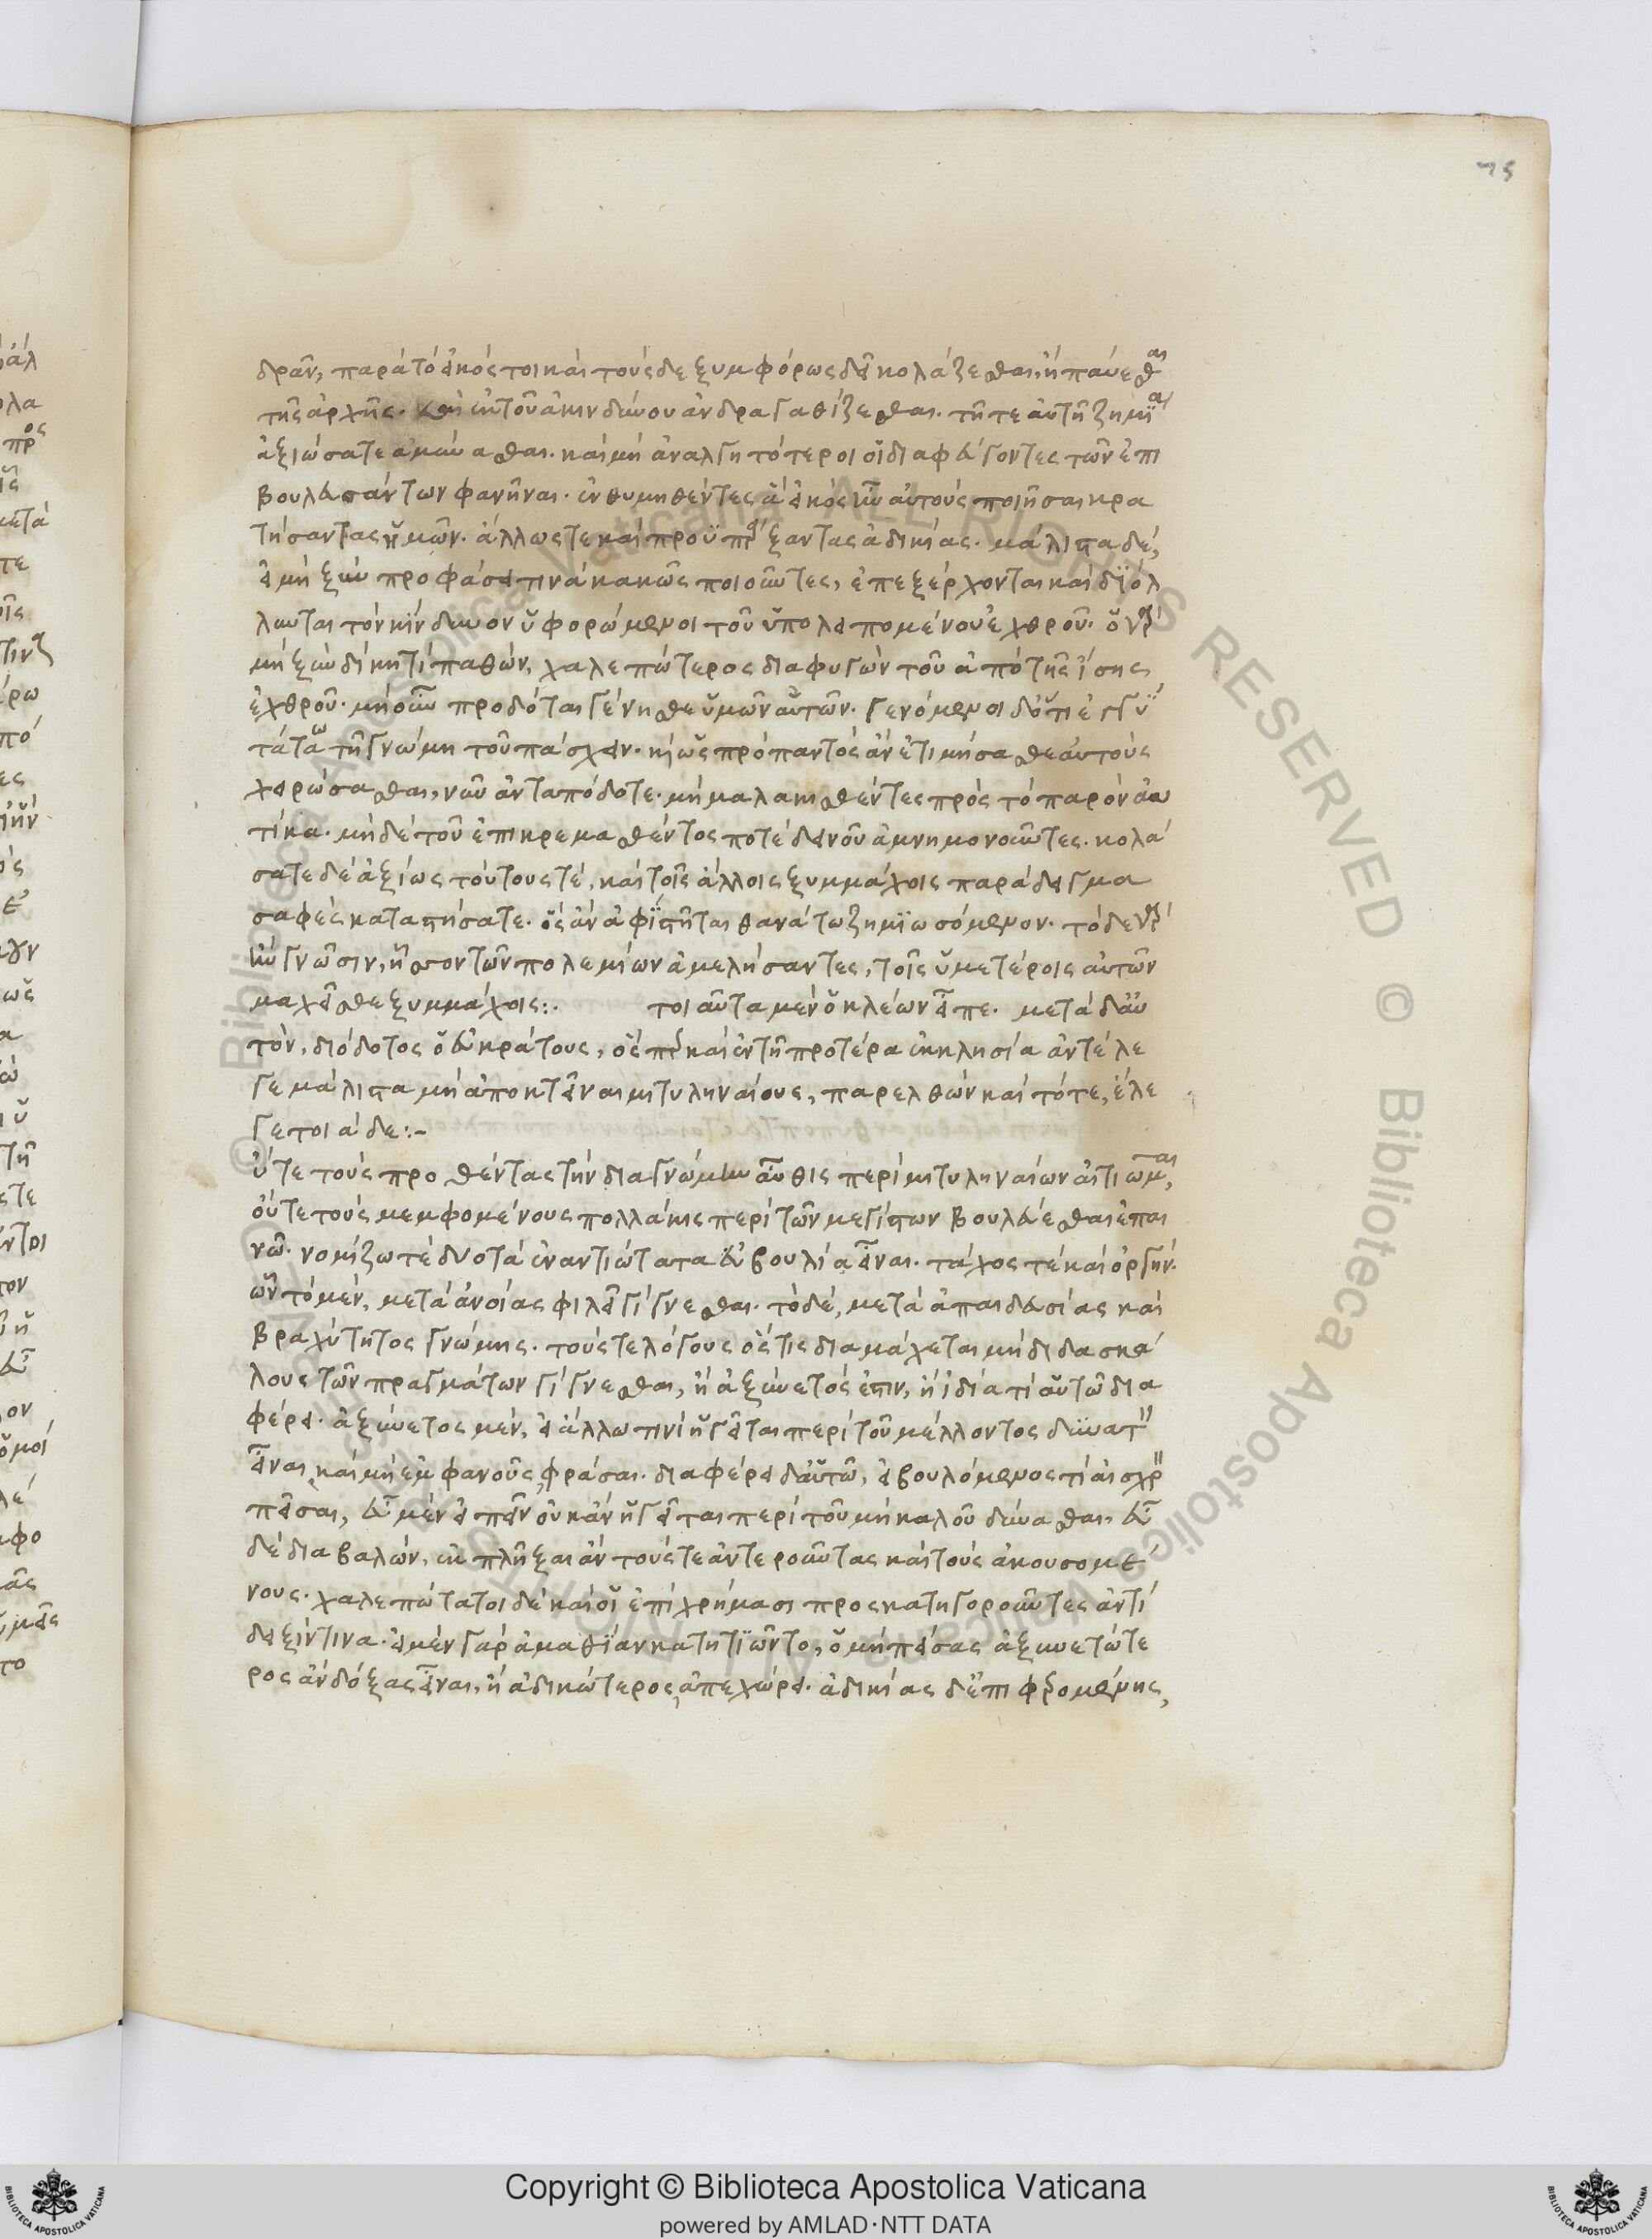 75
δρᾶν, παρὰ τὸ εἰκός τοι καὶ τούσδε ξυμφόρως δεῖ κολάζεσθαι, ἢ παύεσθαι
τῆς ἀρχῆς. καὶ ἐκ τοῦ ἀκινδύνου ἀνδραγαθίζεσθαι. τῆ τε αὐτῆ ζημία
ἀξιώσατε ἀμύνασθαι. καὶ μὴ ἀναλγητότεροι οἱ διαφεύγοντες τῶν ἐπι
βουλευσάντων φανῆναι. ἐνθυμηθέντες ἃ εἰκὸς ἦν αὐτοὺς ποιῆσαι κρα
τήσαντας ὑμῶν. ἄλλως τε καὶ προϋπάρξαντας ἀδικίας. μάλιστα δὲ,
οἱ μὴ ξὺν προφάσει τινὰ κακῶς ποιοῦντες, ἐπεξέρχονται καὶ διόλ
λυνται τὸν κίνδυνον ὑφορώμενοι τοῦ ὑπολειπομένου ἐχθροῦ. ὁ γὰρ
μὴ ξὺν δίκη τὶ παθὼν, χαλεπώτερος διαφυγὼν τοῦ ἀπὸ τῆς ἴσης
ἐχθροῦ. μὴ οὖν προδόται γένησθε ὑμῶν αὐτῶν. γενόμενοι δ' ὅτι ἐγγύ
τάτω τῆ γνώμη τοῦ πάσχειν. κὶ ὡς πρὸ παντὸς ἂν ἐτιμήσασθε αὐτοὺς
χειρώσασθαι, νῦν ἀνταπόδοτε. μὴ μαλακισθέντες πρὸς τὸ παρὸν αὐ
τίκα. μὴδὲ τοῦ ἐπικρεμασθέντος ποτὲ δεινοῦ ἀμνημονοῦντες. κολά
σατε δὲ ἀξίως τούτους τὲ, καὶ τοῖς ἄλλοις ξυμμάχοις παράδειγμα
σαφὲς καταστήσατε. ὃς ἂν ἀφιστῆται θανάτω ζημιωσόμενον. τὸ δε γὰρ
ἢν γνῶσιν, ἧσσον τῶν πολεμίων ἀμελήσαντες, τοῖς ὑμετέροις αὐτῶν
μαχεῖσθε ξυμμάχοις:. τοιαῦτα μὲν ὁ κλέων εἶπε. μετὰ δ' αὐ
τὸν, διόδοτος ὁ εὐκράτους, ὅς περ καὶ ἐν τῆ προτέρα ἐκκλησία ἀντέλε
γε μάλιστα μὴ ἀποκτεῖναι μιτυληναίους, παρελθὼν καὶ τότε, ἔλε
γε τοιάδε:-
ὔτε τοὺς προθέντας τὴν διαγνώμην αὖθις περὶ μιτυληναίων αἰτιῶμαι,
οὔτε τοὺς μεμφομένους πολλάκις περὶ τῶν μεγίστων βουλεύεσθαι ἐπαι
νῶ. νομίζω τὲ δύο τὰ ἐναντιώτατα εὐβουλία εἶναι. τάχος τὲ καὶ ὀργήν.
ὧν τὸ μὲν, μετὰ ἀνοίας φιλεῖ γίγνεσθαι. τὸ δὲ, μετὰ ἀπαιδευσίας καὶ
βραχύτητος γνώμης. τούς τε λόγους ὅς τις διαμάχεται μὴ διδασκά
λους τῶν πραγμάτων γίγνεσθαι, ἢ ἀξύνετός ἐστιν, ἢ ἰδία τὶ αὑτῶ δια
φέρει. ἀξύνετος μὲν, εἰ ἄλλω τινὶ ἡγεῖται περὶ τοῦ μέλλοντος δυνατὸν
εἶναι, καὶ μὴ ἐμφανοῦς, φράσαι. διαφέρει δ' αὑτῶ, εἰ βουλόμενος τὶ αἰσχρὸν
πεῖσαι, εὖ μὲν εἰπεῖν οὐκ ἂν ἡγεῖται περὶ τοῦ μὴ καλοῦ δύνασθαι, εὖ
δὲ διαβαλὼν, ἐκπλῆξαι ἂν τούς τε ἀντεροῦντας καὶ τοὺς ἀκουσομέ
νους. χαλεπώτατοι δὲ καὶ οἱ ἐπὶ χρήμασι προςκατηγοροῦντες ἀντὶ
δειξίν τινα. εἰ μὲν γὰρ ἀμαθίαν κατητιῶντο, ὁ μὴ πείσας ἀξυνετώτε
ρος ἂν δόξας εἶναι, ἢ ἀδικώτερος, ἀπεχώρει. ἀδικίας δ' ἐπιφερομένης,
Copyright © Biblioteca Apostolica Vaticana
powered by AMLAD·NTT DATA